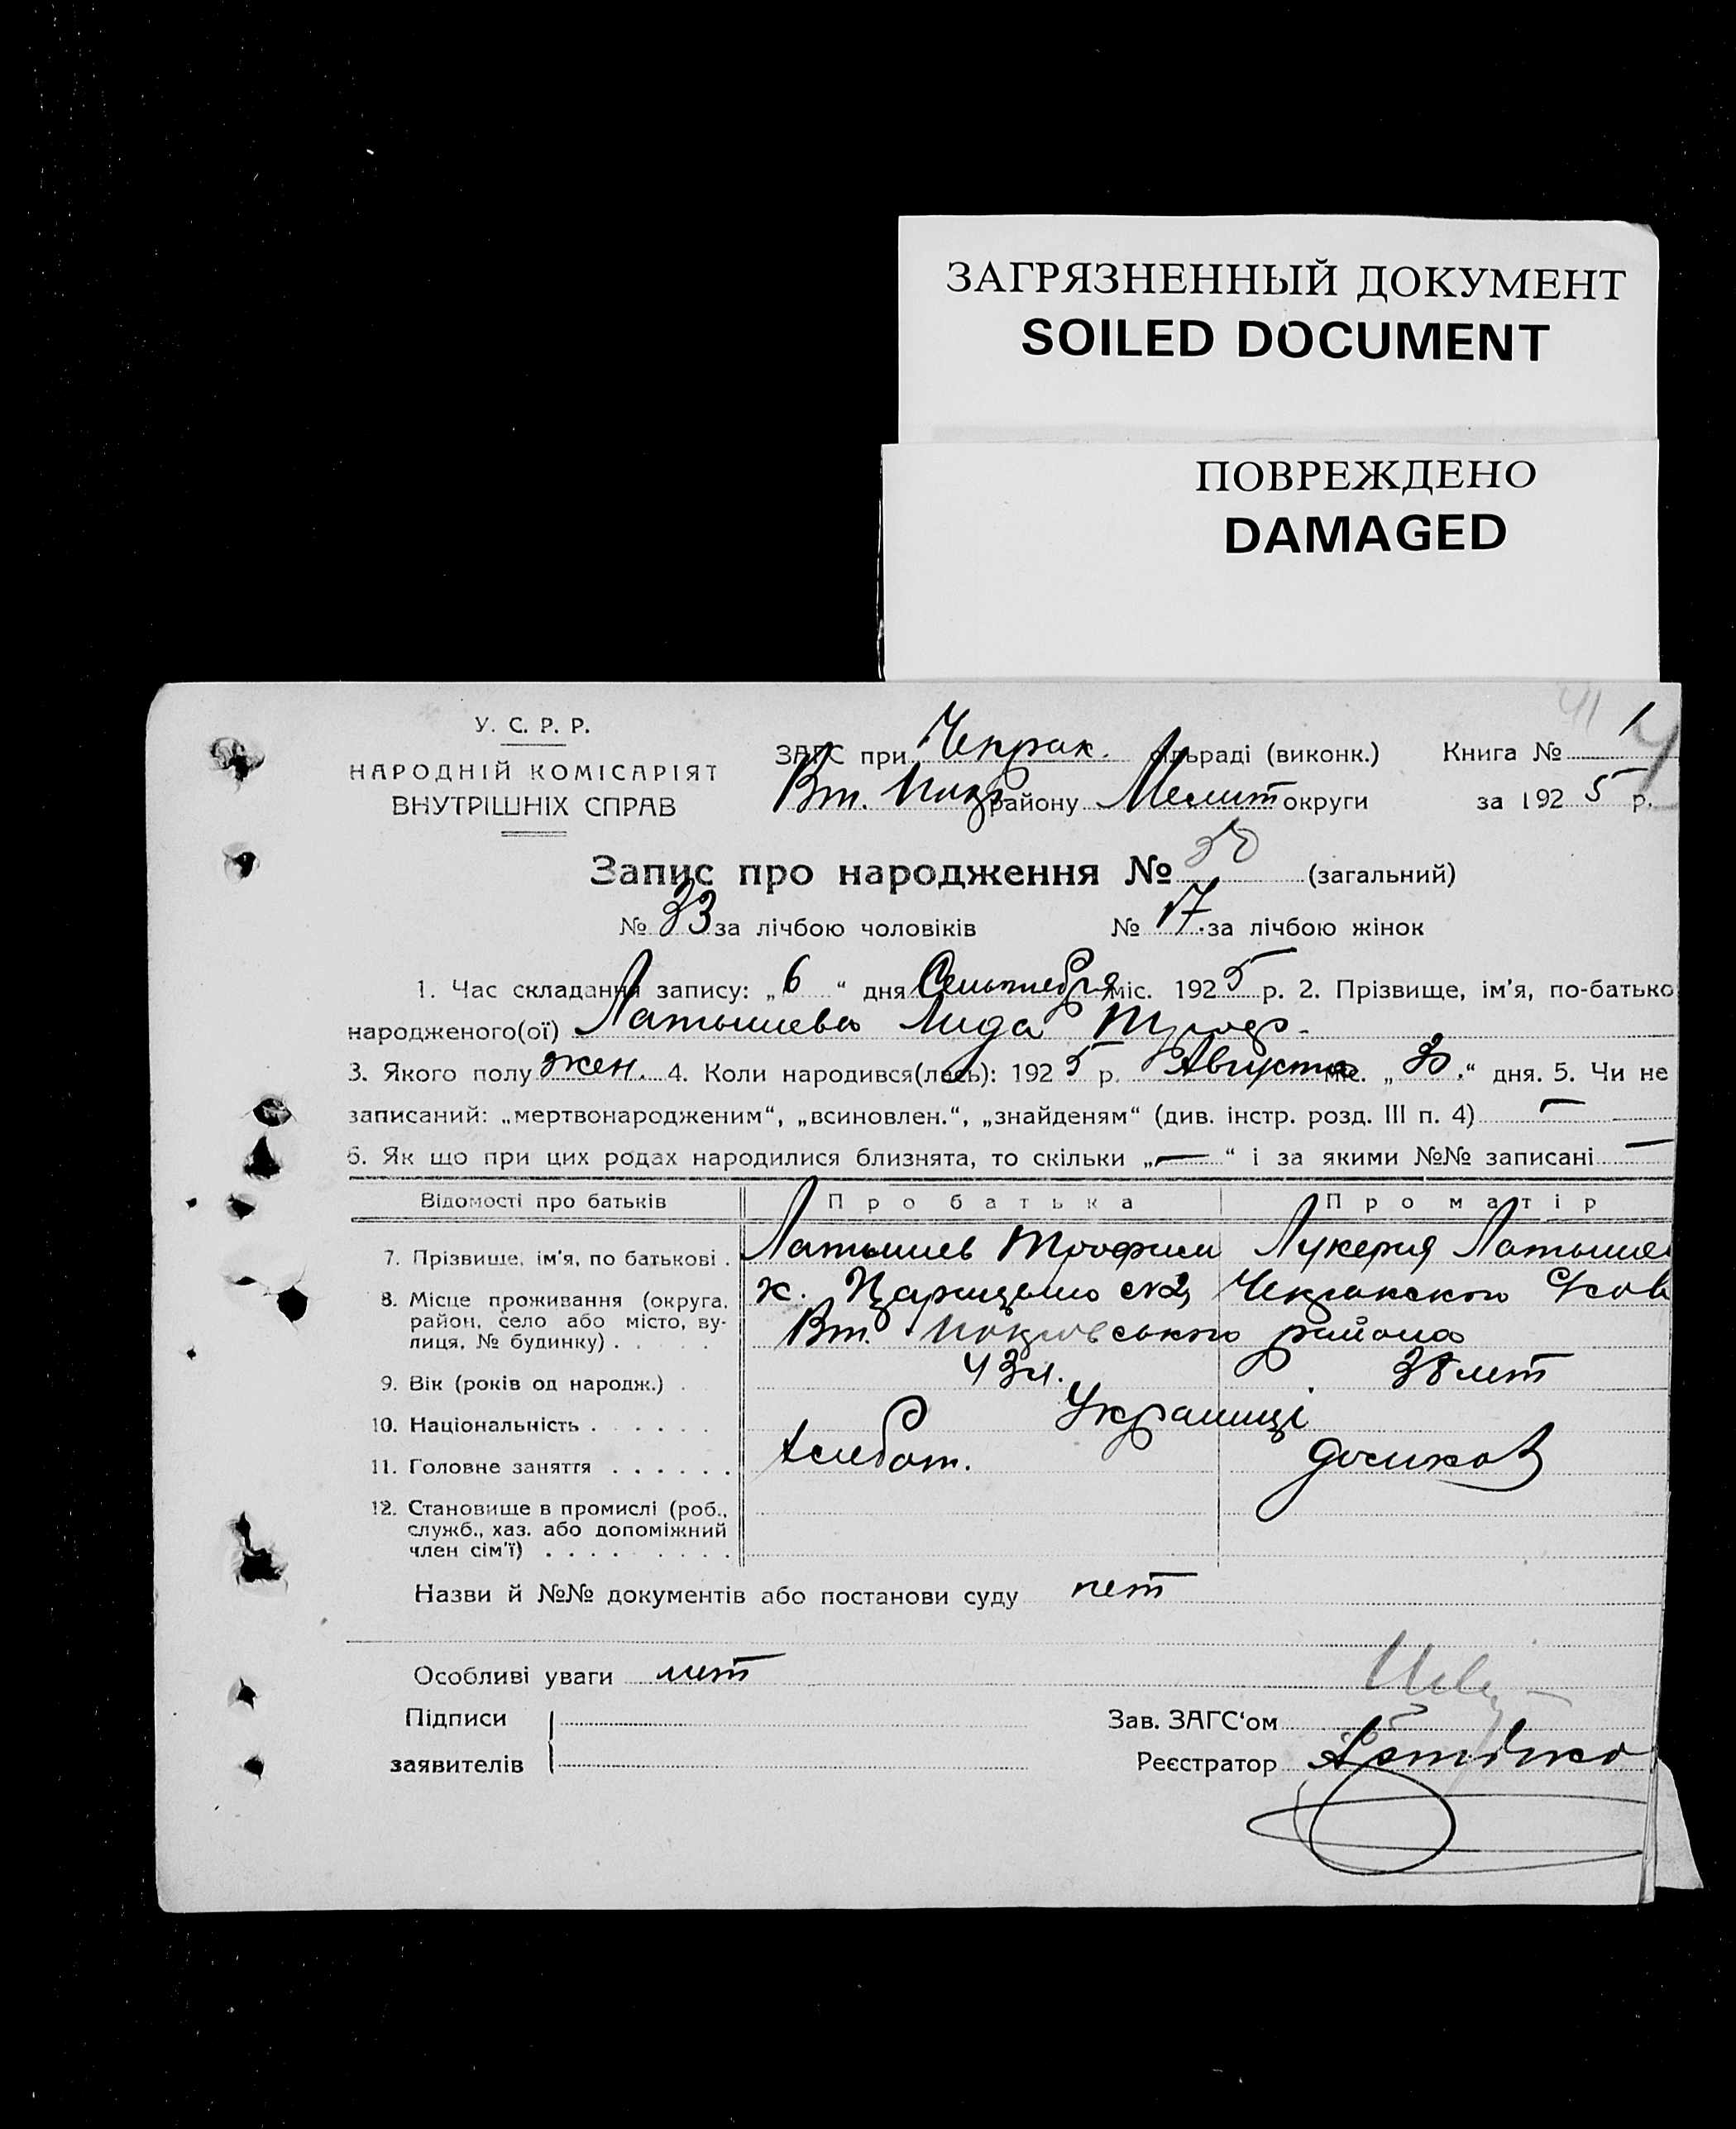 ЗАГРЯЗНЕННЫЙ ДОКУМЕНТ
SOILED DOCUMENT
ПОВРЕЖДЕНО
DAMAGED
41
У. С. Р. Р.
НАРОДНІЙ КОМІСАРІЯТ
ВНУТРІШНІХ СПРАВ
ЗАГС при Чекрак. сільраді (виконк.) Книга № 1
Вт. Покр району Мелит округи за 1925 р.
Запис про народження № 50 (загальний)
№ 33 за лічбою чоловіків № 17 за лічбою жінок
1. Час складання запису: „6“ дня Сентября міс. 1925 р. 2. Прізвище, ім’я, по-батько
народженого(ої) Латышева Лида Троф.
3. Якого полу жен. 4. Коли народився(лась): 1925 р. Августа міс. „30.“ дня. 5. Чи не
записаний: „мертвонародженим“, „всиновлен.“, „знайденям“ (див. інстр. розд. III п. 4) —
6. Як що при цих родах народилися близнята, то скільки „—“ і за якими №№ записані —
Відомості про батьків Про батька Про матір
7. Прізвище, ім’я, по батькові . Латышев Трофим Лукерия Латышев
8. Місце проживання (округа, район, село або місто, вулиця, № будинку) . . . . . х. Царицыно №2, Чекракского
Вт. Покровського района
9. Вік (років од народж.) . 43 л. 38 лет
10. Національність . . . . . . Українці
11. Головне заняття . . . . . . Хлебоп. домхоз
12. Становище в промислі (роб.,
служб., хаз. або допоміжний
член сім’ї) . . . . . . . . .
Назви й №№ документів або постанови суду нет
Особливі уваги нет
Підписи
заявителів
Зав. ЗАГС‘ом
Реєстратор